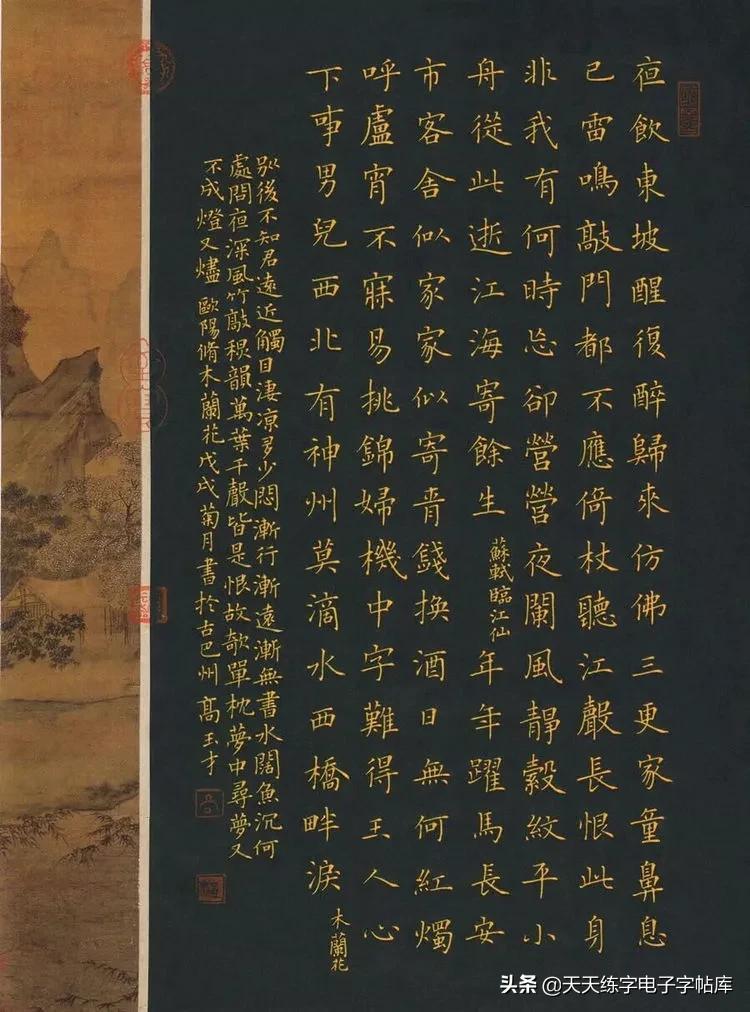 夜飲東坡醒復醉歸來仿佛三更家童鼻息
已雷鳴敲門都不應倚杖聽江聲長恨此身
非我有何時忘卻營營夜闌風靜縠紋平小
舟從此逝江海寄餘生 蘇軾臨江仙 年年躍馬長安
市客舍似家家似寄青錢換酒日無何紅燭
呼盧宵不寐易挑錦婦機中字難得玉人心
下事男兒西北有神州莫滴水西橋畔淚 木蘭花
別後不知君遠近觸目淒涼多少悶漸行漸遠漸無書水闊魚沉何
處問夜深風竹敲秋韻萬葉千聲皆是恨故欹單枕夢中尋夢又
不成燈又燼 歐陽脩木蘭花戊戌菊月書於古巴州高玉才
头条 @天天练字电子字帖库